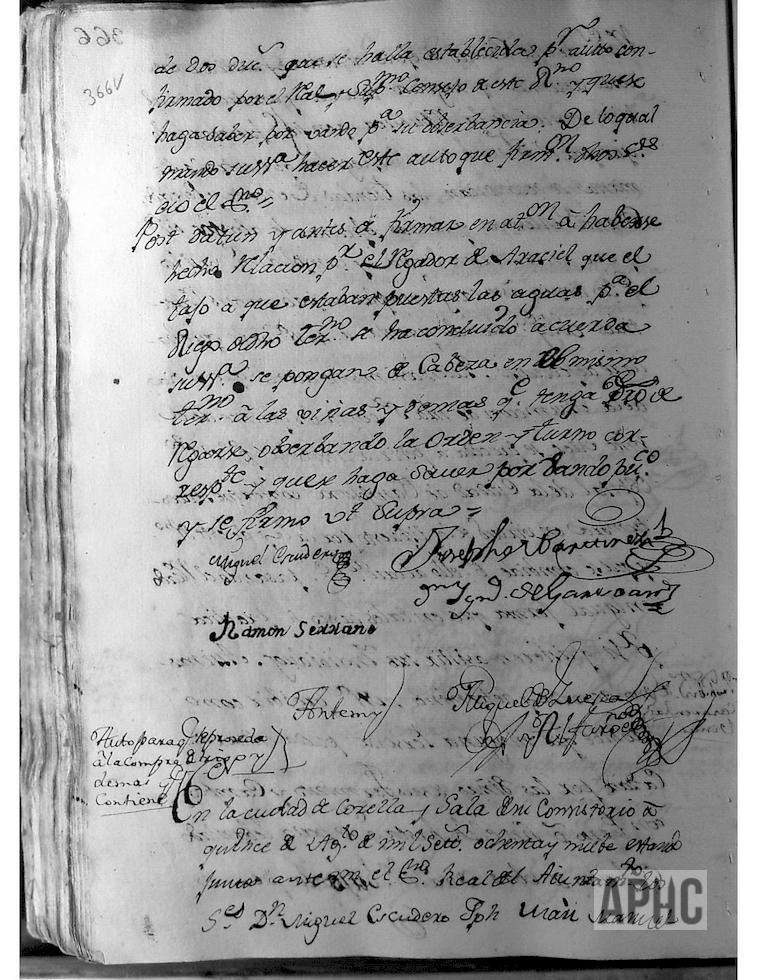 366
366V
de dos duc.s que se halla establecida pr. auto con-
firmado por el Real y Sup.mo Consejo de este R.no y que se
haga saber por vando p.a su obserbancia. De lo qual
mando su ss.a hacer este auto que firm.n dhos S.res
é yo el Ess.no =
Post datun y antes de firmar en at.on â haberse
hecho Relacion pr. el Regador de Araciel que el
tajo a que estaban puestas las aguas p.a el
Riego de dho Ter.no se ha concluido acuerda
su ss.a se pongan de Cabeza en el mismo
ter.no â las viñas y demas q.e tenga dro de
Regarse, obserbando la Orden y turno cor-
resp.te y que se haga saver por bando pu.co
y se firmo vt. Supra =
Miguel Escudero
Joseph
Ramon Serrano
Antemy
Miguel de Luesa
y Alfaro
Auto para q. se proceda
â la compra de trigo y
demas q.e
Contiene
En la ciudad de Corella y Sala de su Consistorio â
quince de Ag.to de mil Set.s ochenta y nuebe estando
juntos ante mi el Ess.no Real del Ayuntam.to los
S.es D.n Miguel Escudero Jph Man Manuel
APHC